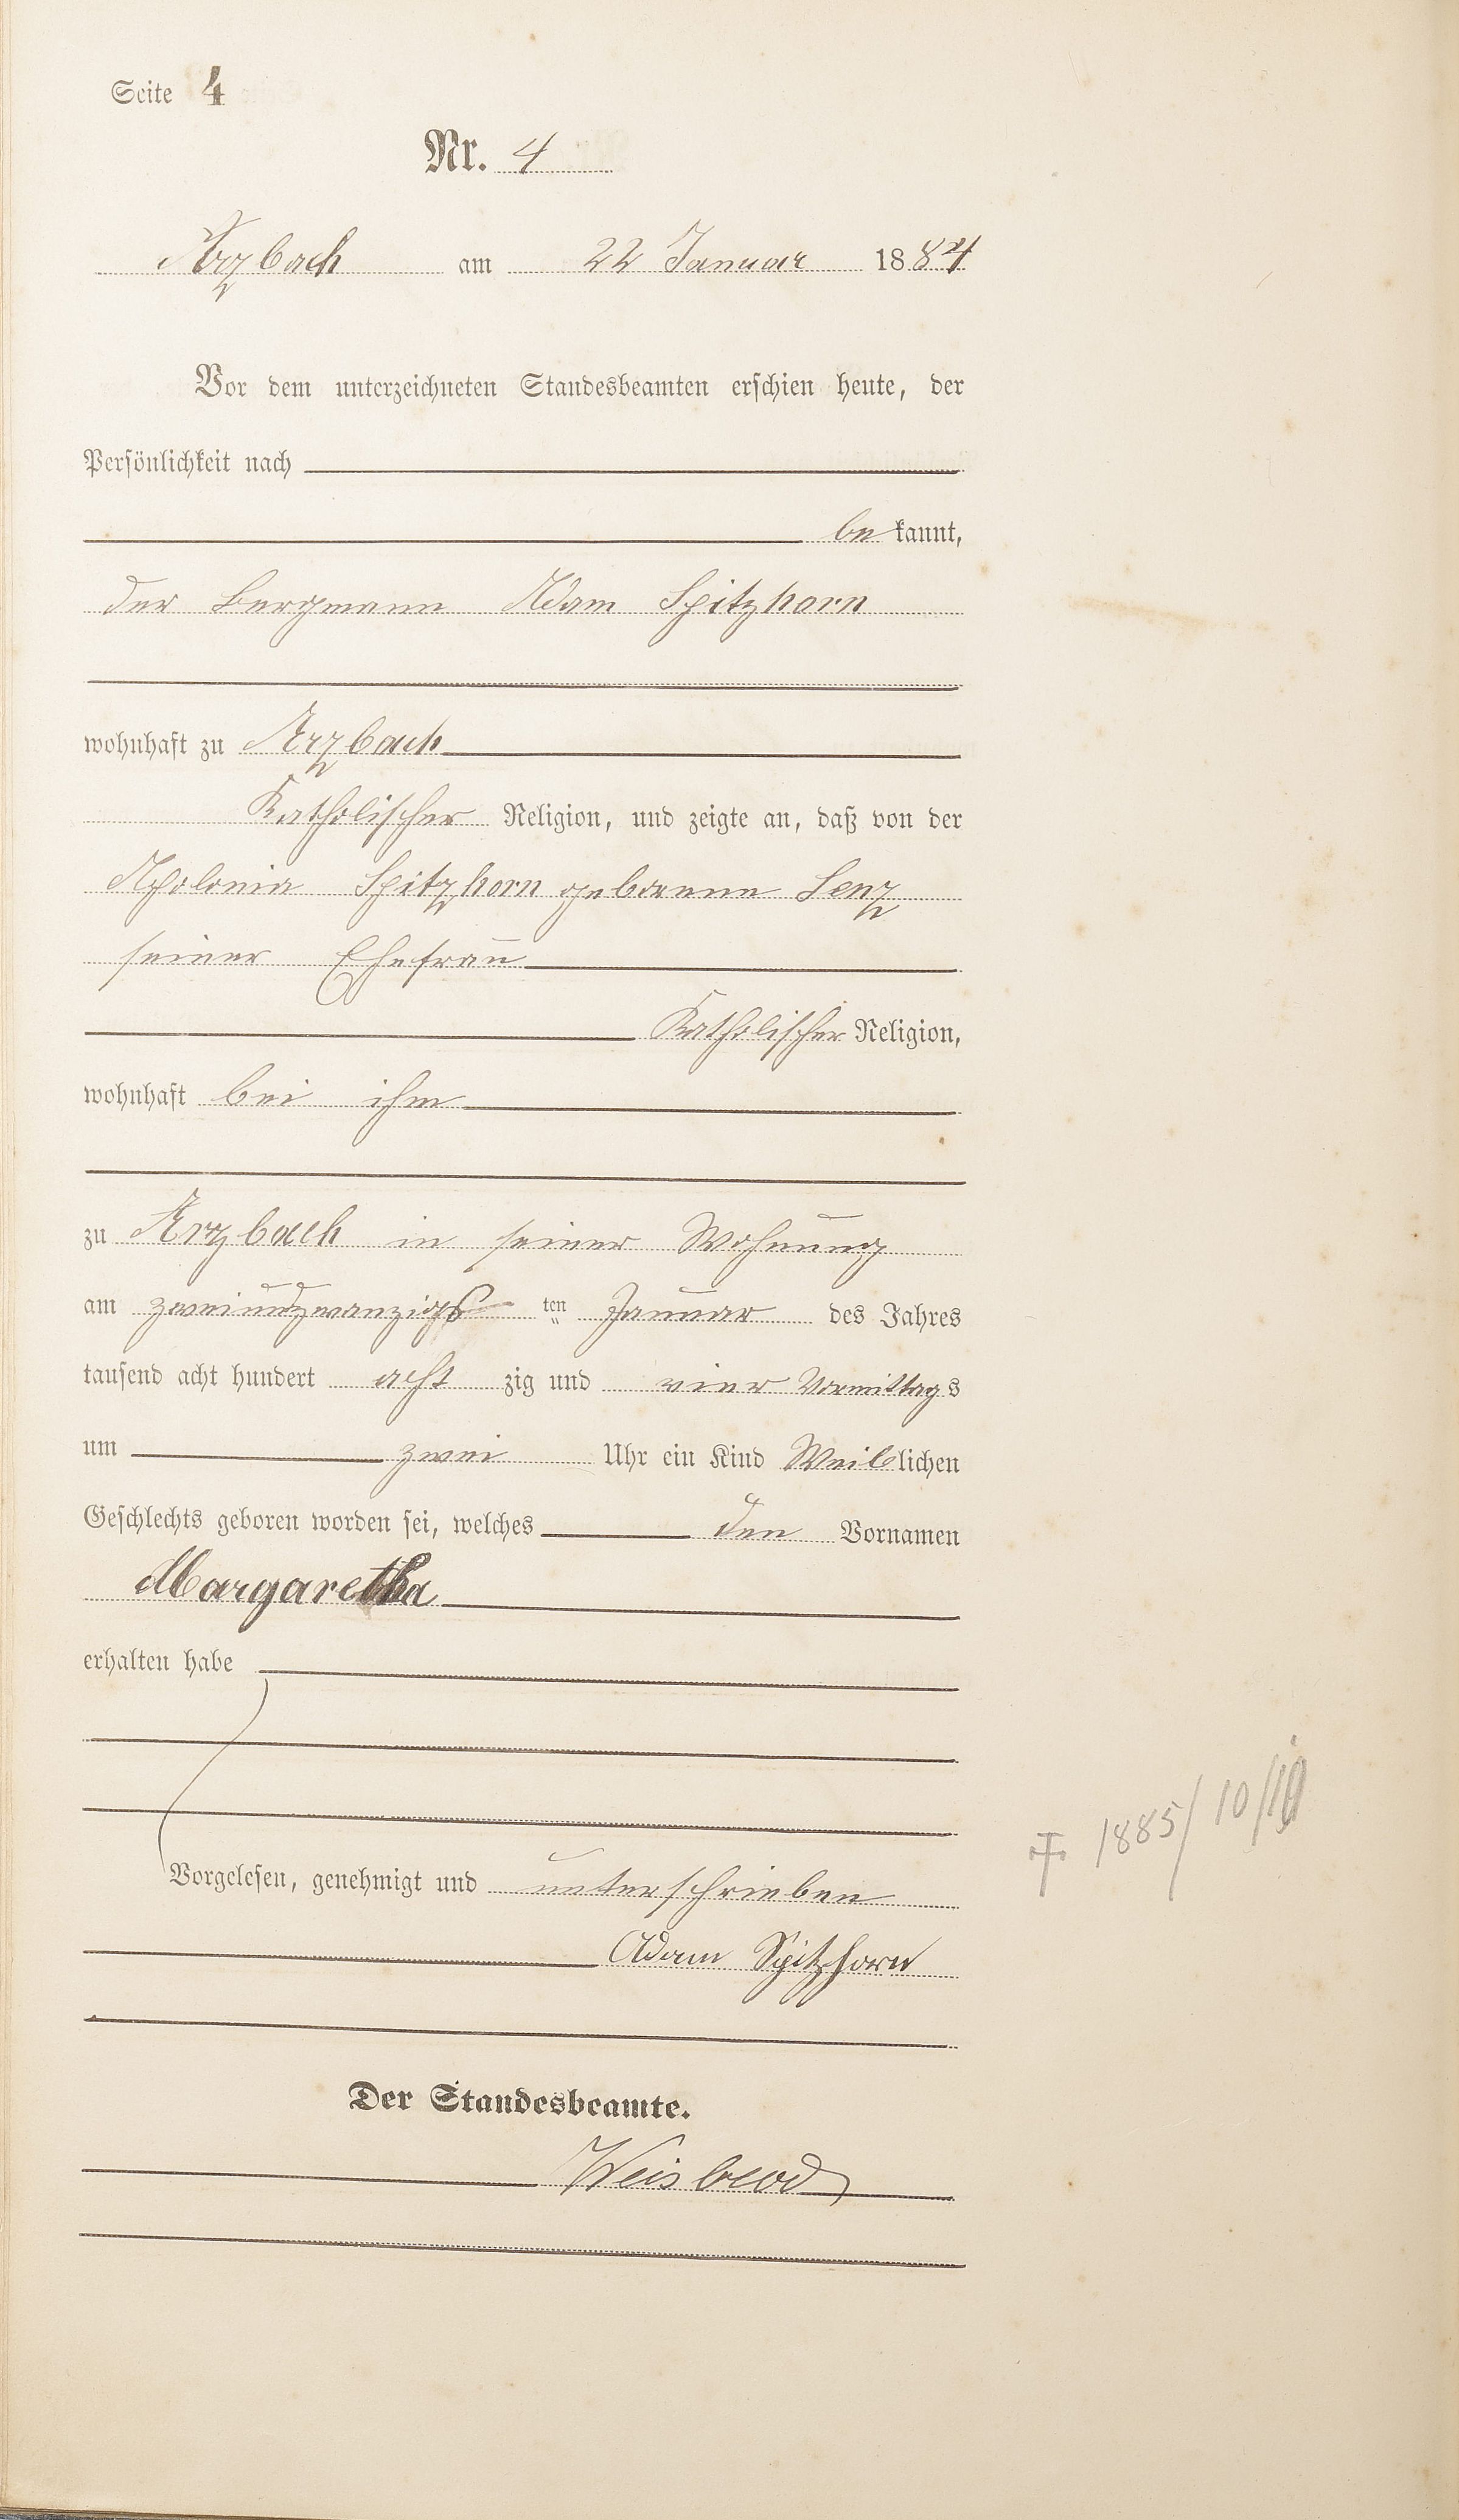 Seite 4
Nr. 4
Arzbach am 22 Januar 1884
Vor dem unterzeichneten Standesbeamten erschien heute, der
Persönlichkeit nach
bekannt,
der Bergmann Adam Spitzhorn
wohnhaft zu Arzbach
Katholischer Religion, und zeigte an, daß von der
Apolonia Spitzhorn geborenen Lenz
seiner Ehefrau
Katholischer Religion,
wohnhaft bei ihm
zu Arzbach in seiner Wohnung
am zweiundzwanzigs ten Januar des Jahres
tausend acht hundert acht zig und vier Vormittags
um zwei Uhr ein Kind Weiblichen
Geschlechts geboren worden sei, welches den Vornamen
Margaretha
erhalten habe
† 1885/10/
Vorgelesen, genehmigt und unterschrieben
Adam Spitzhorn
Der Standesbeamte.
Weisbrod